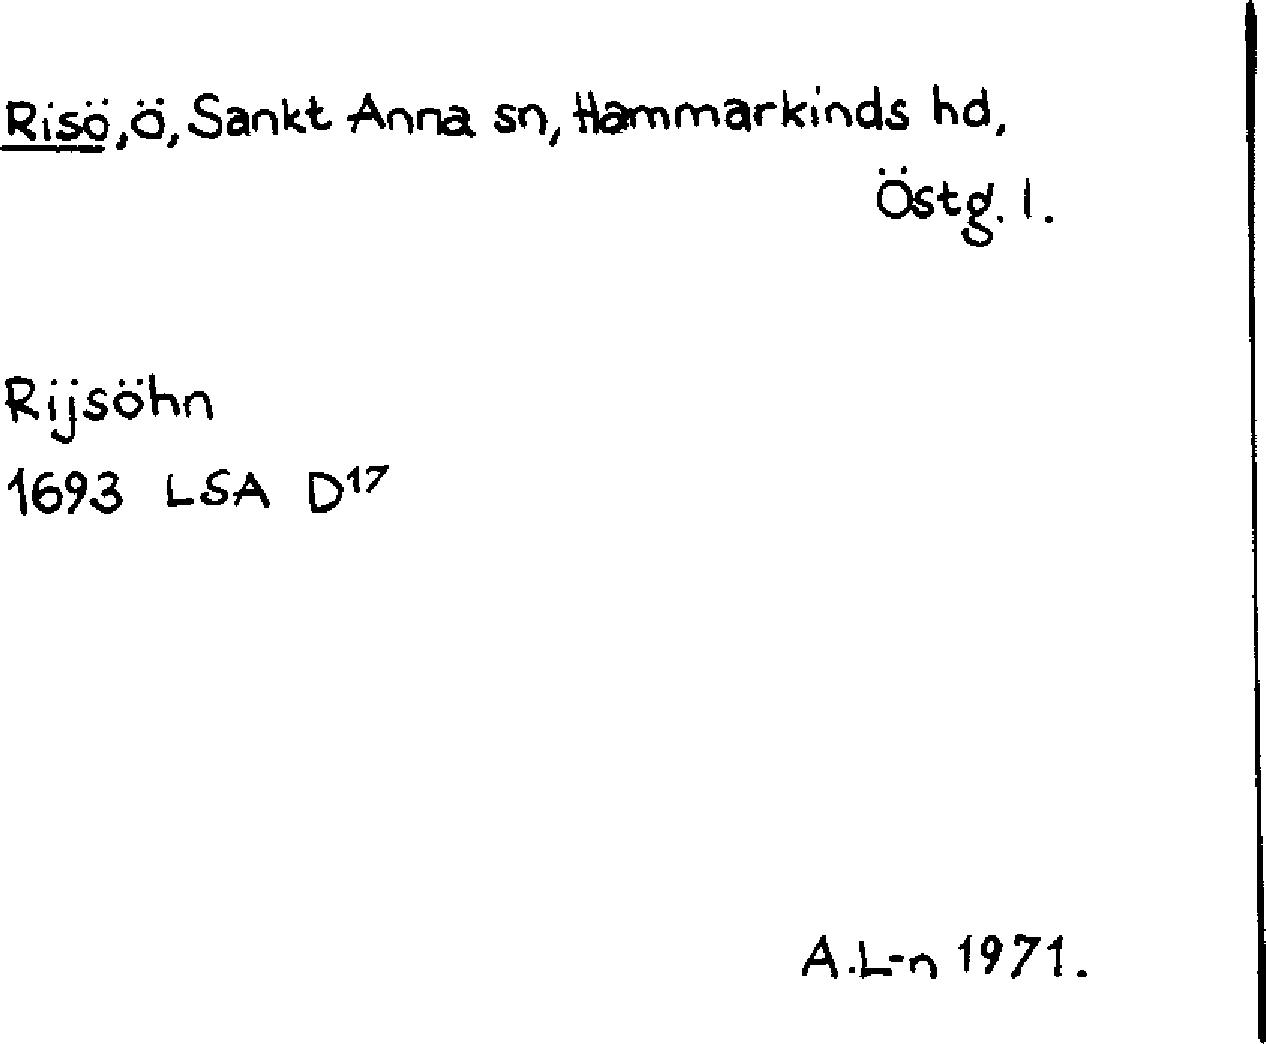 Risö, ö, Sankt Anna sn, Hammarkinds hd,
Östg. l.
Rijsöhn
1693 LSA D17
A.L-n 1971.